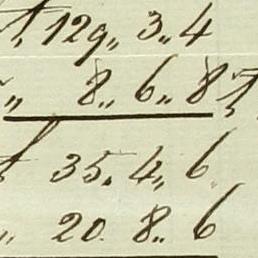 129,, 3,, 4
,, 8,, 6,, 8
35. 4,, 6
,, 20. 8,, 6